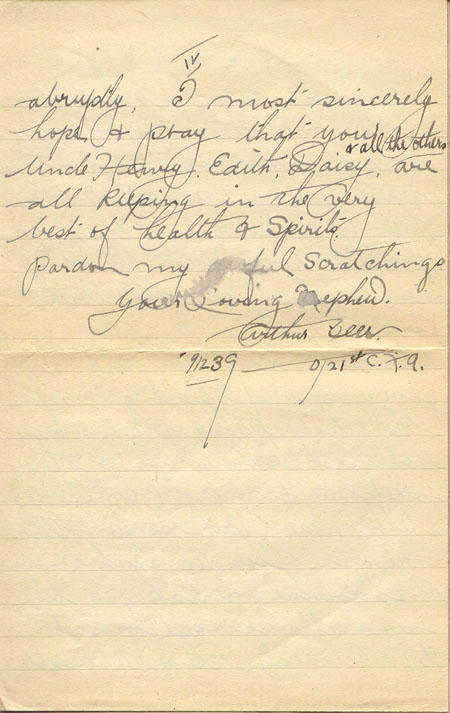 IV
abruptly. I most sincerely
hope & pray that you,
& all the others
Uncle Henry, Edith, Daisy, are
all keeping in the very
best of health & Spirits.
Pardon my awful Scratchings
Your Loving Nephew.
Arthur
9/1239 21st C.F.A.